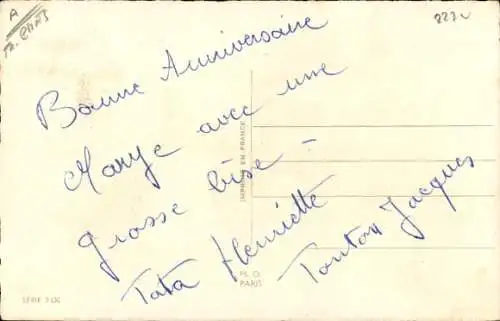 A
222
Bonne Anniversaire
Marye avec une
grosse bise -
Tata Henriette
Tonton Jacques
IMPRIMÉ EN FRANCE
M. D.
PARIS
SÉRIE